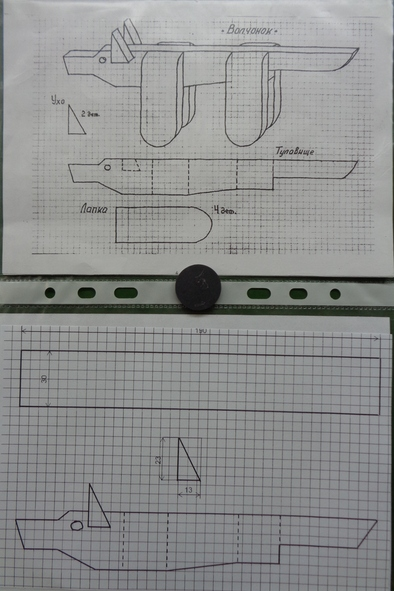 • Волчонок •
Ухо
2 дет.
Туловище
Лапка
4 дет.
190
30
23
13